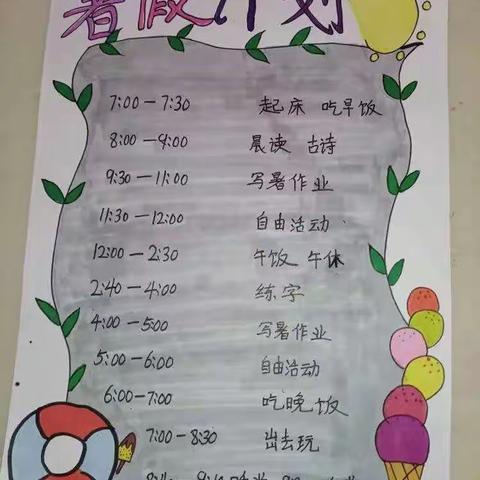 暑假计划
7:00—7:30 起床 吃早饭
8:00—9:00 晨读 古诗
9:30—11:00 写暑作业
11:30—12:00 自由活动
12:00—2:30 午饭 午休
2:40—4:00 练字
4:00—5:00 写暑作业
5:00—6:00 自由活动
6:00—7:00 吃晚饭
7:00—8:30 出去玩